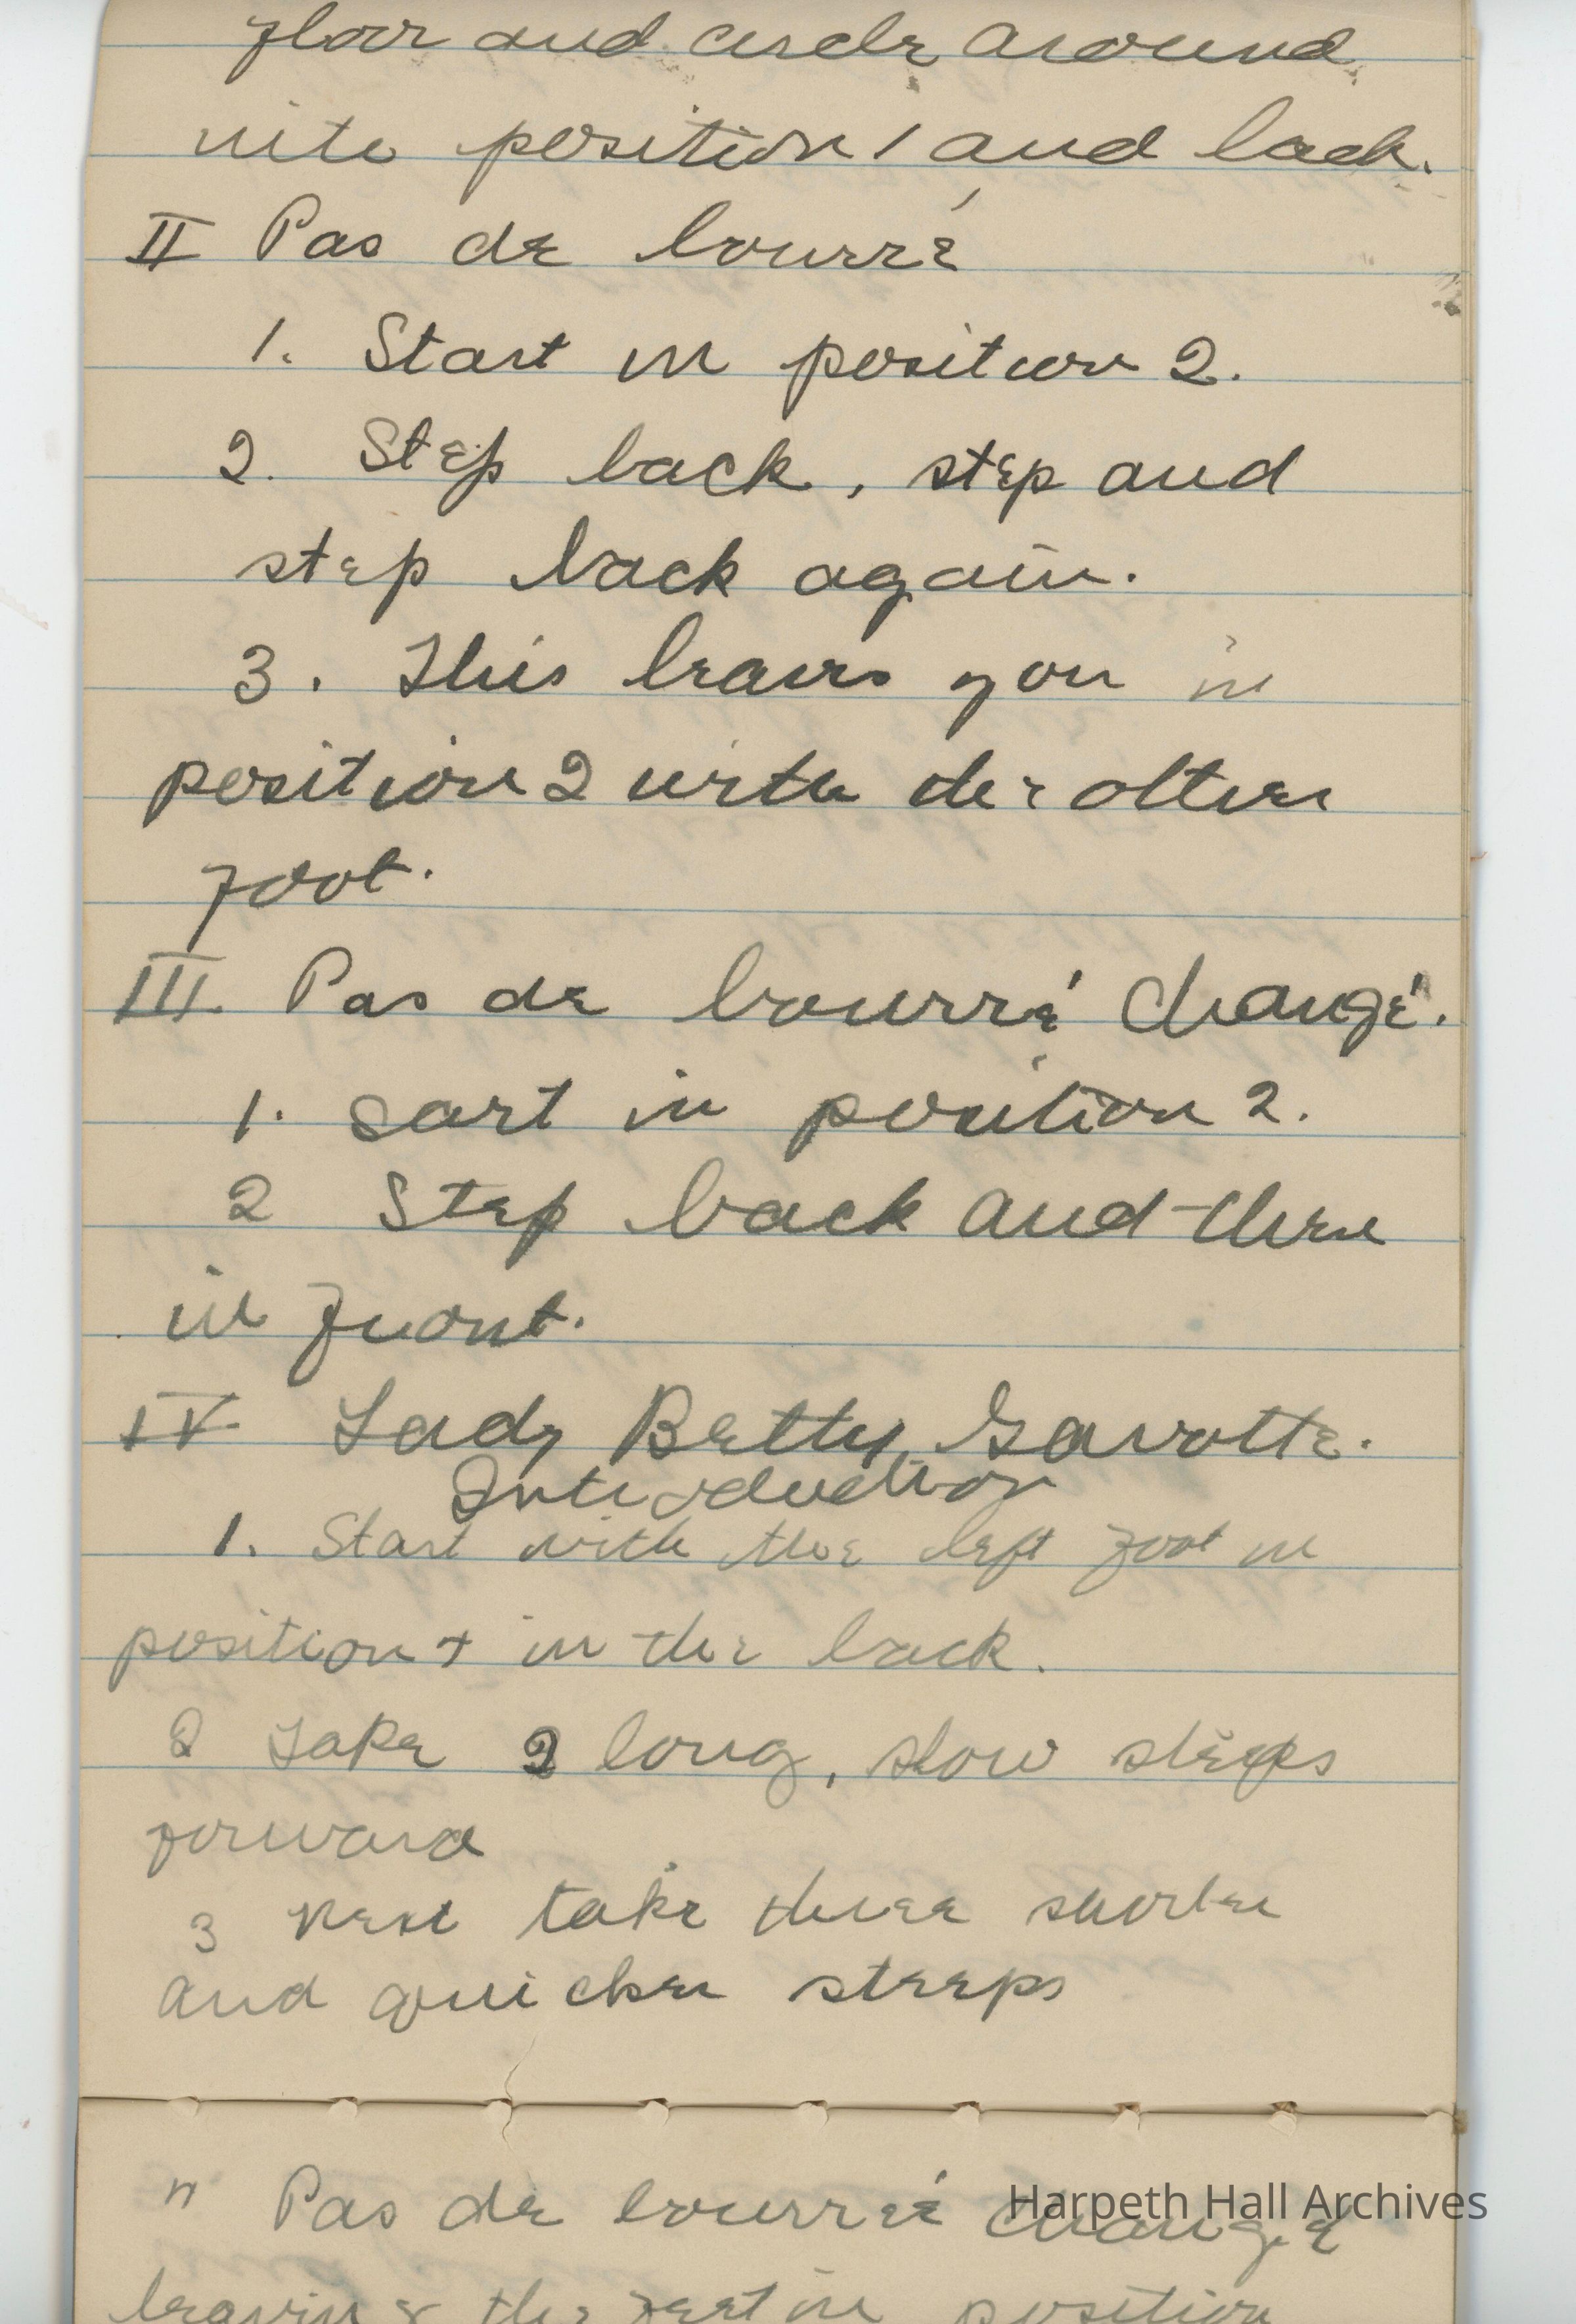 floor and circle around
into position 1 and back.
II Pas de bourré
1. Start in position 2.
2. Step back, step and
step back again.
3. This leavs you in
position 2 with the other
foot.
III. Pas de bourré changé.
1. Sart in position 2.
2 Step back and then
in front.
IV Lady Betty Gavotte.
Introduction
1. Start with the left foot in
position in the back.
2 Take 2 long, slow steeps
forward
3 Next take three shorter
and quicker steeps
Pas de bourreé changé
Harpeth Hall Archives
leaving the feet in position